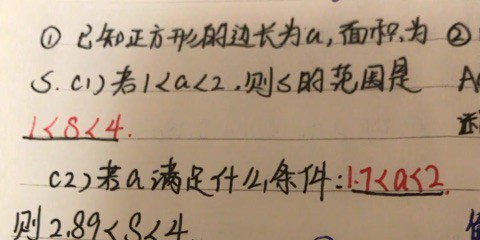 ① 已知正方形的边长为a,面积为 ②
S.(1)若1<a<2,则S的范围是
1<S<4.
(2)若a满足什么条件:1.7<a<2.
则2.89<S<4.